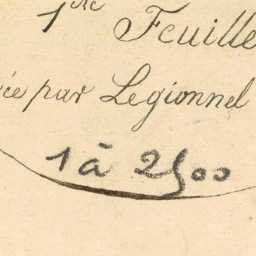 1re Feuille
ée par Legionnel
1 à 2500